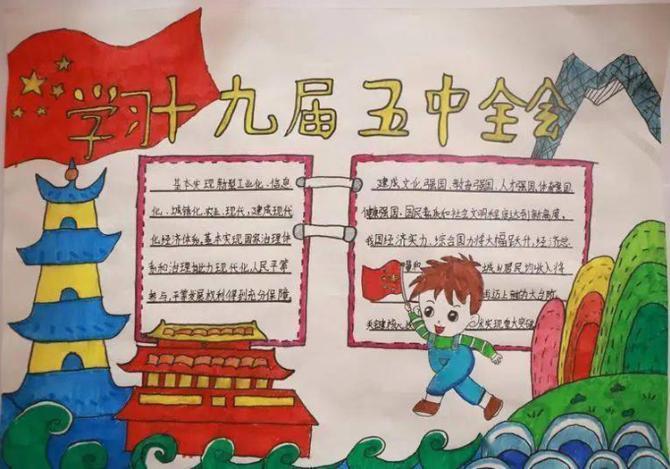 学习十九届五中全会
基本实现新型工业化、信息
化、城镇化、农业、现代,建成现代
化经济体系,基本实现国家治理体
系和治理能力现代化,人民平等
参与,平等发展权利得到充分保障
建成文化强国、教育强国、人才强国、体育强国
健康强国,国民素质和社会文明程度达到新高度,
我国经济实力、综合国力将大幅跃升,经济总
城乡居民均收入将
再迈上新的大台阶
关键核心 实现重大突破